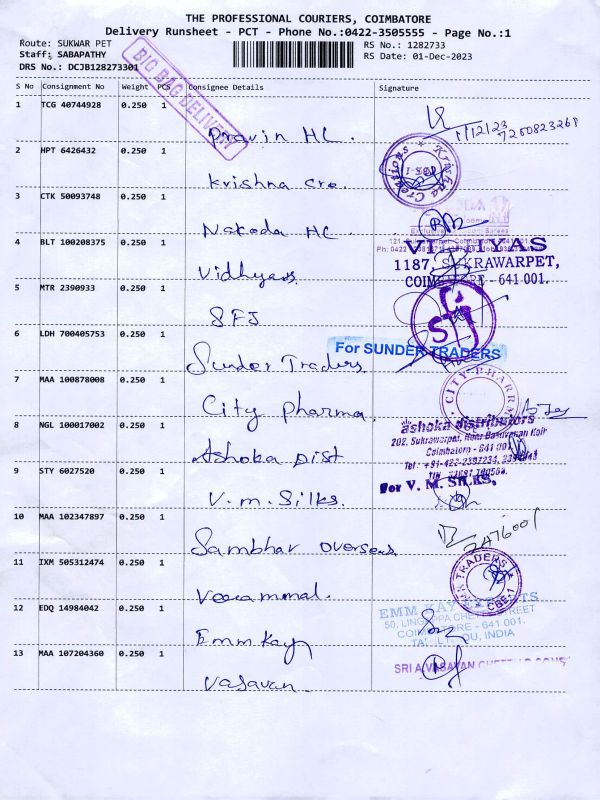 THE PROFESSIONAL COURIERS, COIMBATORE
Delivery Runsheet - PCT - Phone No.:0422-3505555 - Page No.:1
Route: SUKWAR PET
RS No.: 1282733
Staff: SABAPATHY
RS Date: 01-Dec-2023
DRS No.: DCJB128273301
BIG BAG DELIVERY
S No Consignment No Weight PCS Consignee Details Signature
1 TCG 40744928 0.250 1
Pravin HC.
1/12/23
7260823268
2 HPT 6426432 0.250 1
Krishna Cre.
Krishna Creations
3 CTK 50093748 0.250 1
Nakoda HC
4 BLT 100208375 0.250 1
Vidhyavs
VAS
1187, SUKRAWARPET,
COIMBATORE - 641 001.
5 MTR 2390933 0.250 1
SFJ
6 LDH 700405753 0.250 1
Sunder Traders.
For SUNDER TRADERS
7 MAA 100878008 0.250 1
City Pharma.
CITY PHARMA
8 NGL 100017002 0.250 1
Ashoka Dist
ashoka distributors
202, Sukrawarpet,
Coimbatore - 641 001
9 STY 6027520 0.250 1
V.M.Silks.
For V. M. SILKS,
10 MAA 102347897 0.250 1
Sambhav Overseas
11 IXM 505312474 0.250 1
Veerammal.
TRADERS
CBE-1
12 EDQ 14984042 0.250 1
Emm Kay
EMM KAY EXPORTS
50, LINGAPPA CHETTY STREET
COIMBATORE - 641 001.
TAMIL NADU, INDIA
13 MAA 107204360 0.250 1
Vasavan
SRI A.VASAVAN CHETTIAR SONS